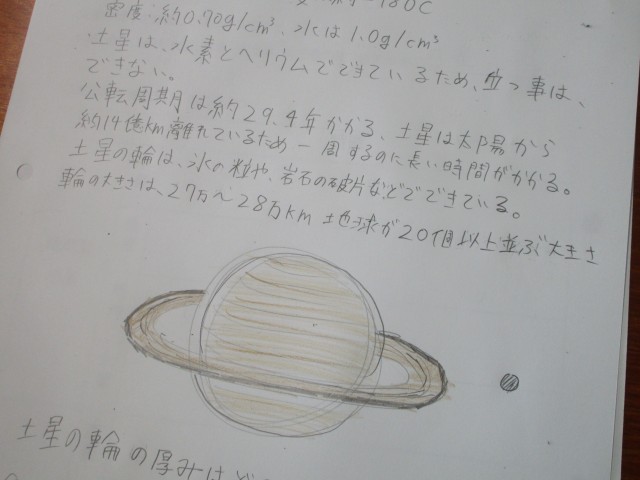 約-180℃
密度:約0.70g/cm³、水は1.0g/cm³
土星は、水素とヘリウムでできているため、立つ事は、
できない。
公転周期は約29.4年かかる、土星は太陽から
約14億km離れているため一周するのに長い時間がかかる。
土星の輪は、氷の粒や、岩石の破片などでできている。
輪の大きさは、27万〜28万km 地球が20個以上並ぶ大きさ
土星の輪の厚みは